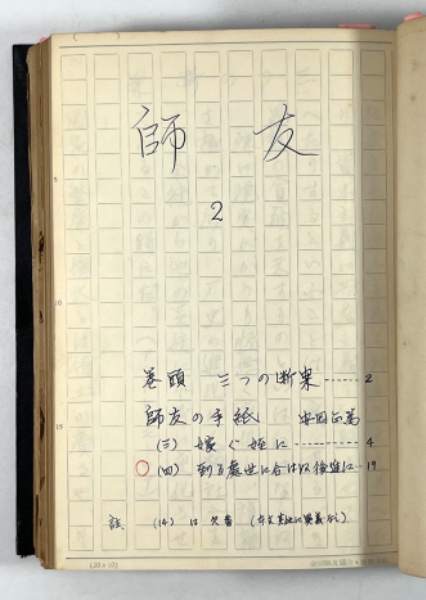 師 友
2
巻頭 三つの断案------2
師友の手紙 安岡正篤
(三) 嫁ぐ姪に----------4
(四) 到る處世に合はぬ後進に--19
註 (14) は欠番
5
10
15
(20×10)